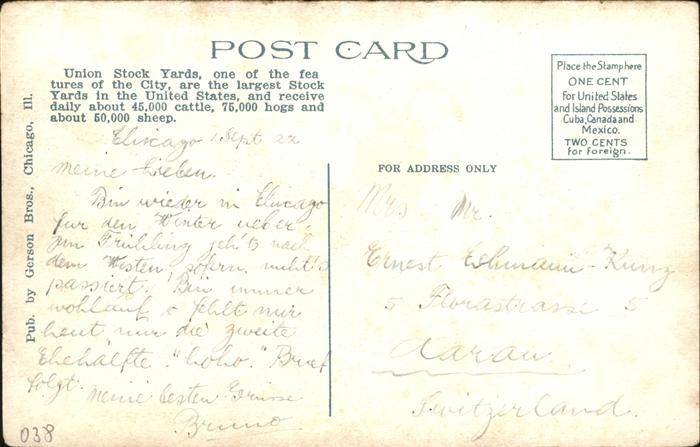 POST CARD
Union Stock Yards, one of the fea
tures of the City, are the largest Stock
Yards in the United States, and receive
daily about 45,000 cattle, 75,000 hogs and
about 50,000 sheep.
Place the Stamp here
ONE CENT
For United States
and Island Possessions
Cuba, Canada and
Mexico.
TWO CENTS
for Foreign.
Pub. by Gerson Bros., Chicago, Ill.
Chicago 1 Sept 22
Meine Lieben.
Bin wieder in Chicago
fur den Winter ueber,
im Frühling geht's nach
dem Westen, sofern nicht's
passiert. Bin immer
wohlauf & fehlt mir
heut nur die zweite
Ehehälfte. "hoho." Brief
folgt.
Meine besten Grüsse
Bruno
FOR ADDRESS ONLY
Mrs Mr.
Ernest Lehmann-Kunz
5 Florastrasse 5
Aarau
Switzerland.
038